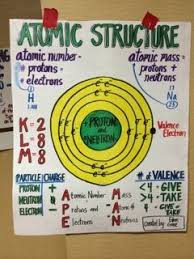 ATOMIC STRUCTURE
atomic number =
protons +
electrons
atomic mass =
protons +
neutrons
1
H
11
Na
23
K=2
L=8
M=8
PROTON
and
NEUTRON
Valence
Electron
PARTICLE CHARGE
PROTON +
NEUTRON
ELECTRON -
Atomic Number
Protons and
Electrons
Mass
Atomic #
Neutrons
# OF VALENCE
<4 - GIVE
>4 - TAKE
=4 - GIVE or
TAKE
created by: